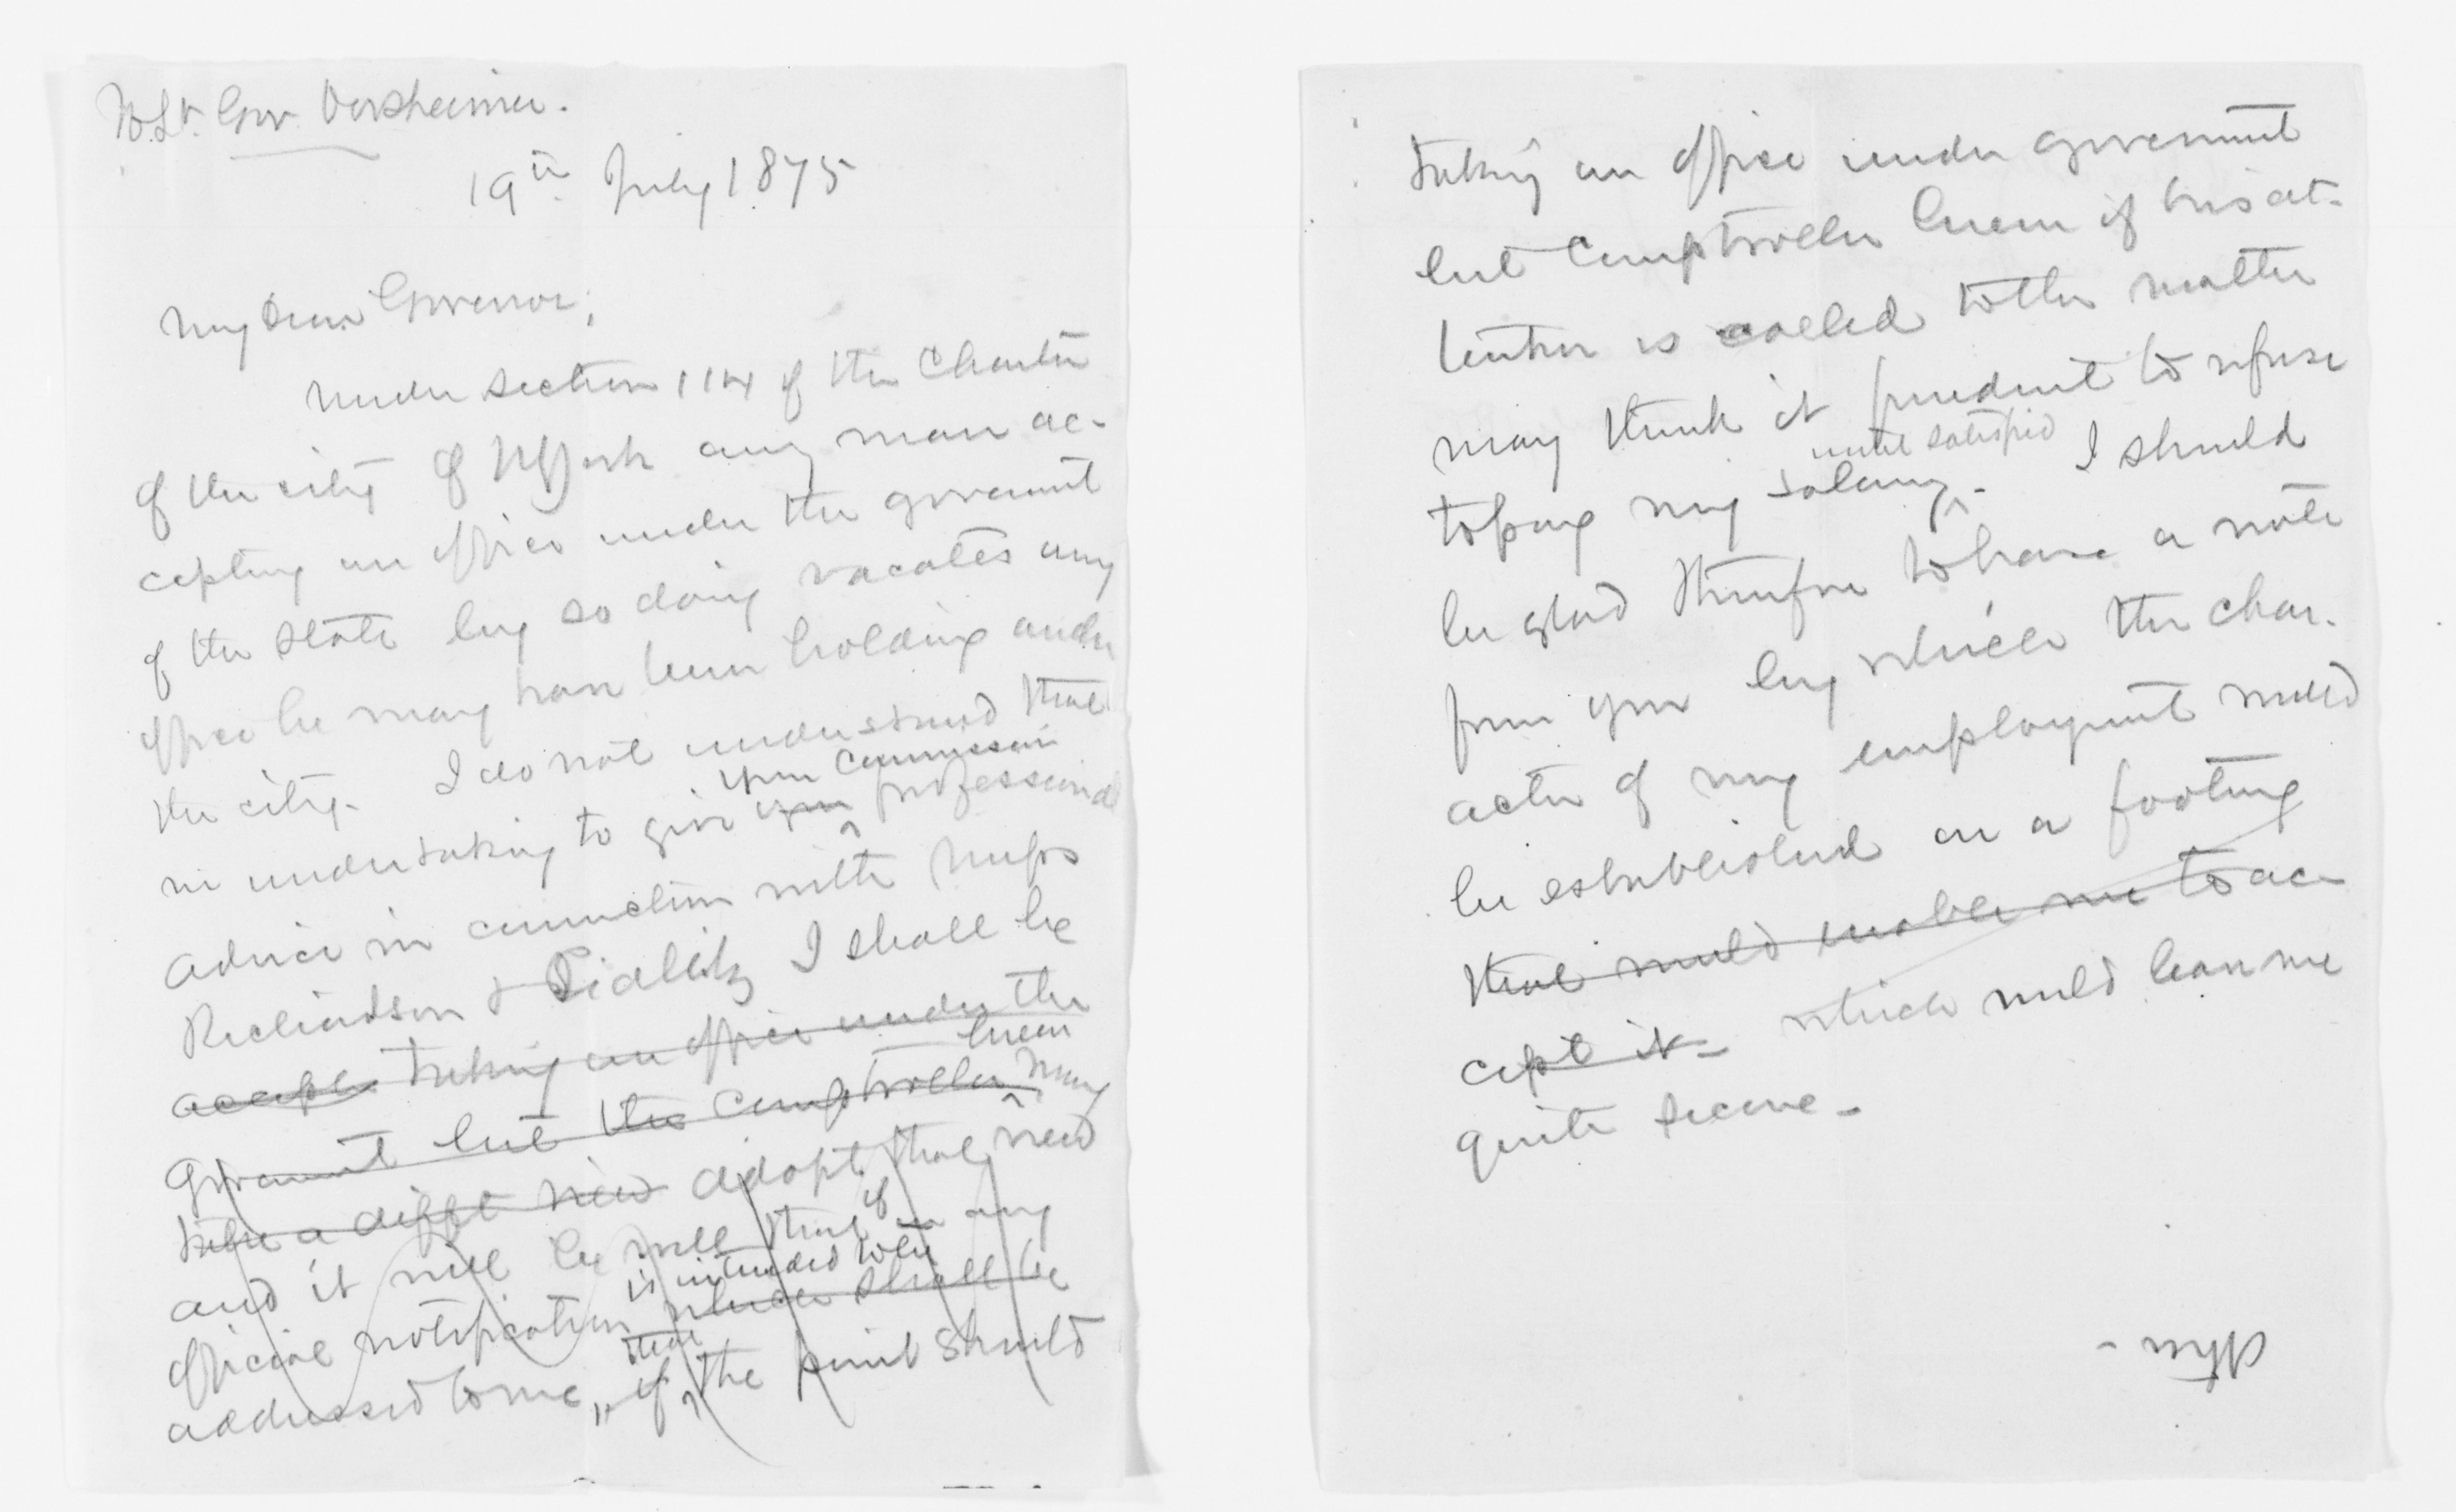 To Lt. Gov. Dorsheimer.
19th July 1875
My Dear Governor;
Under section 114 of the Charter
of the city of N York any man ac-
cepting an office under the government
of the State by so doing vacates any
office he may have been holding under
the city. I do not understand that
your Commission
in undertaking to give your professional
advice in connection with Messrs
Richardson & Eidlitz I shall be
accept taking an office under the
Green
government but the Comptroller may
take a difft view adopt that view
and it will be well that if in any
is intended to be
official notification which shall be
that
addressed to me, if the point should
taking an office under government
but Comptroller Green if his at-
tention is called to the matter
may think it prudent to refuse
until satisfied
to pay my salary. I should
be glad therefore to have a note
from you by which the char-
acter of my employment would
be established on a footing
that would enable me to ac-
cept it - which would leave me
quite secure -